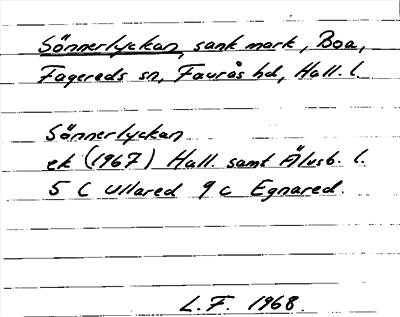 Sönnerlyckan, sank mark, Boa,
Fagereds sn, Faurås hd, Hall. l.
Sönnerlyckan
ek (1967) Hall. samt Älvsb. l.
5 C Ullared 9 c Egnared.
L.F. 1968.